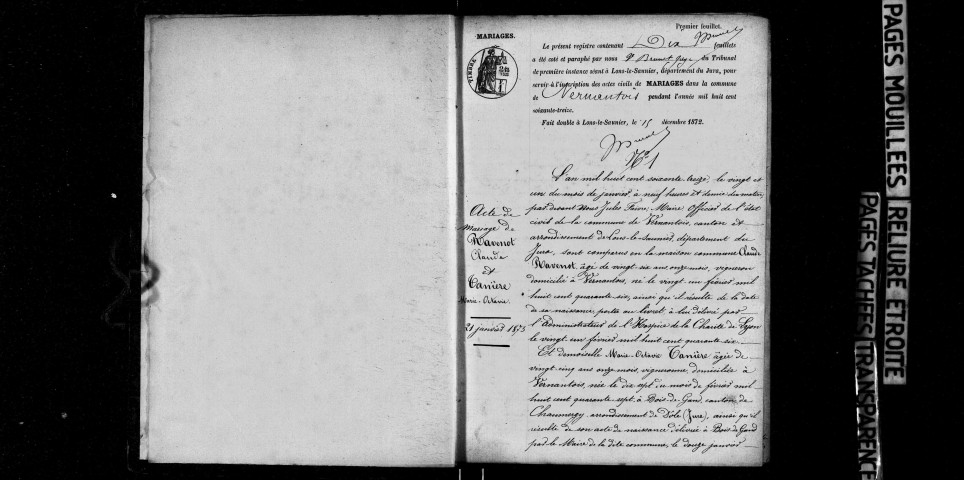 Premier feuillet.
MARIAGES.
TIMBRE
Le présent registre contenant Dix feuillets
a été coté et paraphé par nous Pr Brenot Juge du Tribunal
de première instance séant à Lons-le-Saunier, département du Jura, pour
servir à l'inscription des actes civils de MARIAGES dans la commune
de Vernantois pendant l'année mil huit cent
soixante-treize.
Fait double à Lons-le-Saunier, le 15 décembre 1872.
N° 1
Acte de
Mariage de
Ravenot
Claude
et
Tanière
Marie-Octavie.
21 janvier 1873
L'an mil huit cent soixante treize, le vingt et
un du mois de janvier, à neuf heures et demie du matin,
par devant Nous Jules Maire Officier de l'état
civil de la commune de Vernantois, canton et
arrondissement de Lons-le-Saunier, département du
Jura, sont comparus en la maison commune Claude
Ravenot, âgé de vingt-six ans onze mois, vigneron
domicilié à Vernantois, né le vingt un février mil
huit cent quarante six, ainsi qu'il résulte de la date
de sa naissance portée au livret à lui délivré par
l'administrateur de l'Hospice de la Charité de Lyon
le vingt un février mil huit cent quarante six.
Et demoiselle Marie-Octavie Tanière âgée de
vingt-cinq ans onze mois, vigneronne, domiciliée à
Vernantois, née le dix sept du mois de février mil
huit cent quarante sept à Bois-de-Gand, canton de
Chaumergy arrondissement de Dôle (Jura), ainsi qu'il
résulte de son acte de naissance délivré à Bois de Gand
par le Maire de la dite commune, le douze janvier
PAGES MOUILLEES
RELIURE ETROITE
PAGES TACHEES
TRANSPARENCE